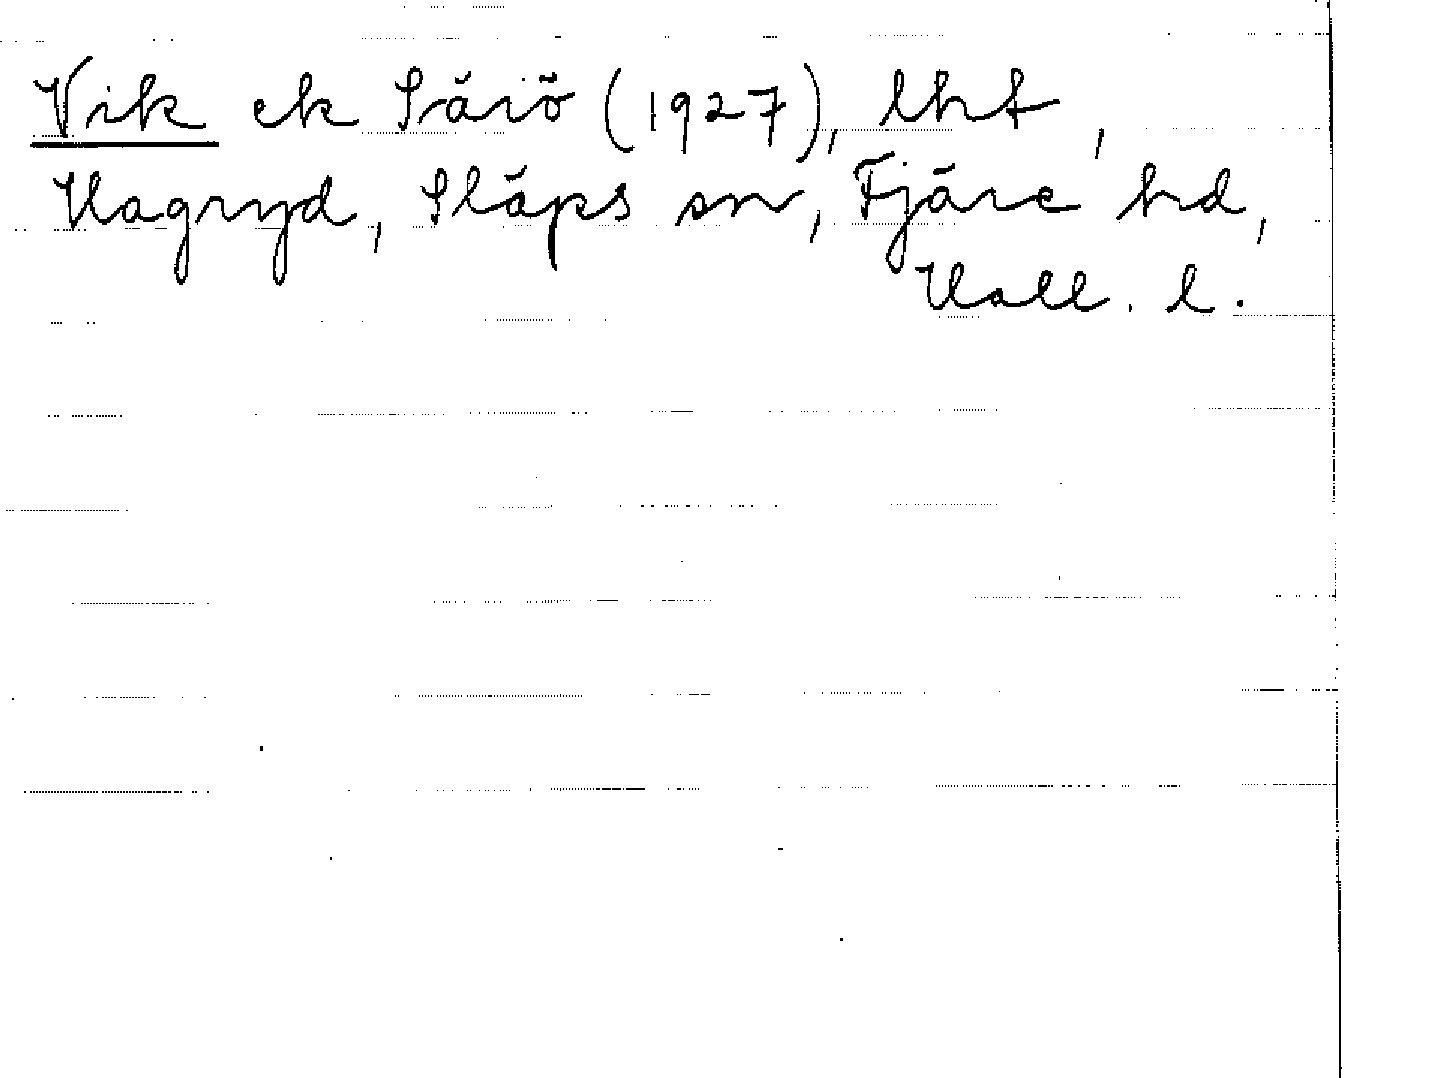 Vik ek Särö (1927), lht,
Hagryd, Släps sn, Fjäre hd,
Hall. l.